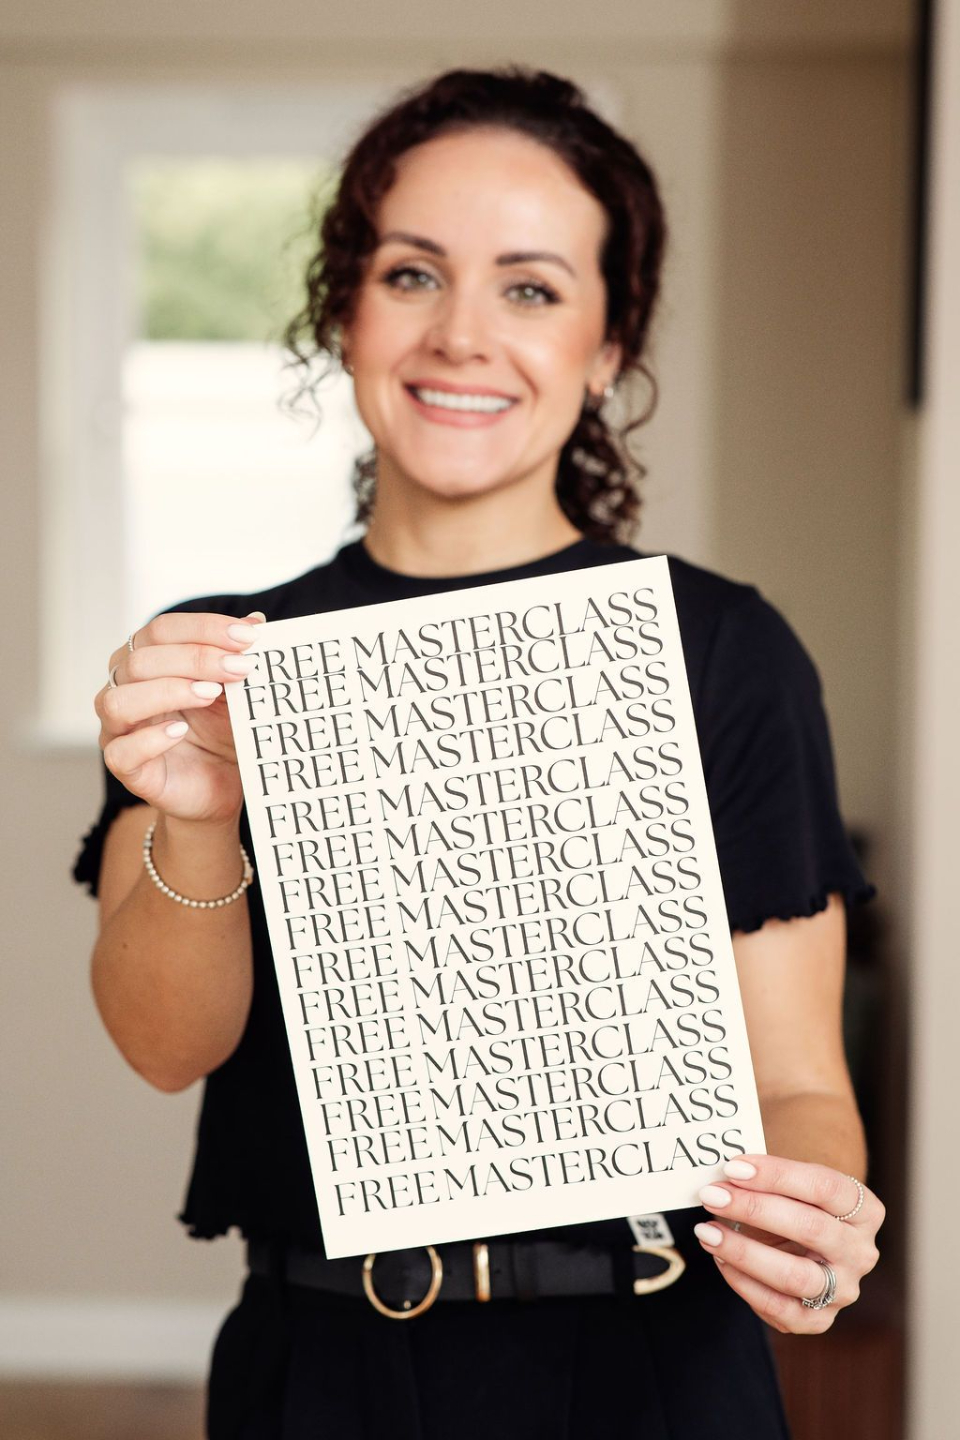 FREE MASTERCLASS
FREE MASTERCLASS
FREE MASTERCLASS
FREE MASTERCLASS
FREE MASTERCLASS
FREE MASTERCLASS
FREE MASTERCLASS
FREE MASTERCLASS
FREE MASTERCLASS
FREE MASTERCLASS
FREE MASTERCLASS
FREE MASTERCLASS
FREE MASTERCLASS
FREE MASTERCLASS
FREE MASTERCLASS